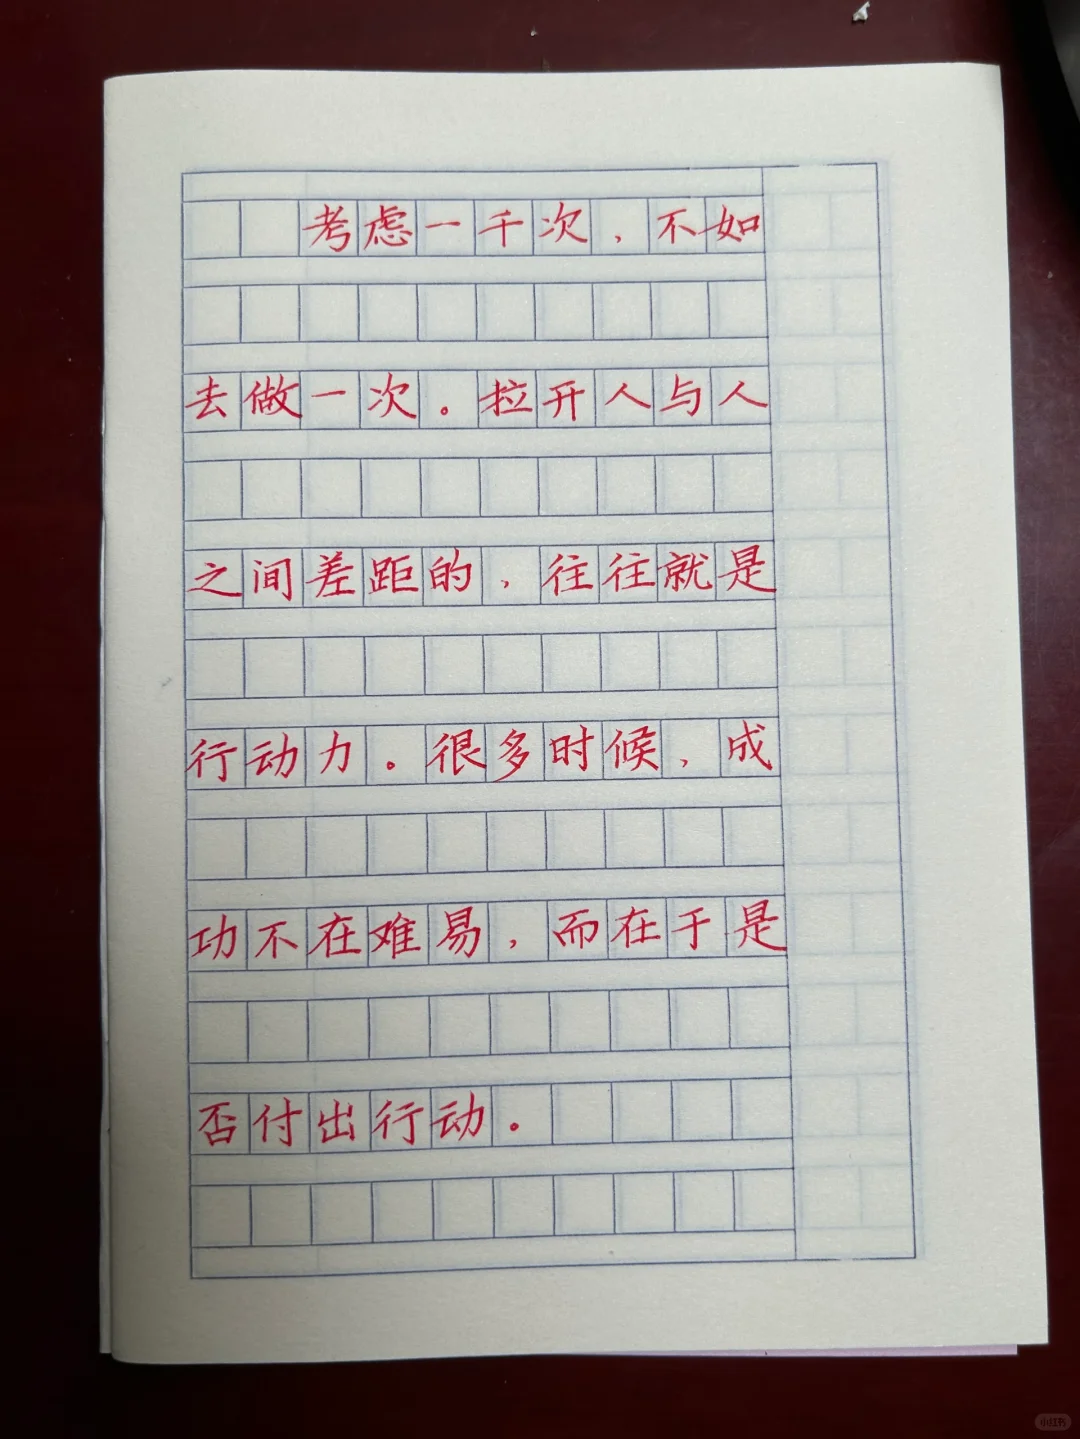 考虑一千次，不如
去做一次。拉开人与人
之间差距的，往往就是
行动力。很多时候，成
功不在难易，而在于是
否付出行动。
小红书